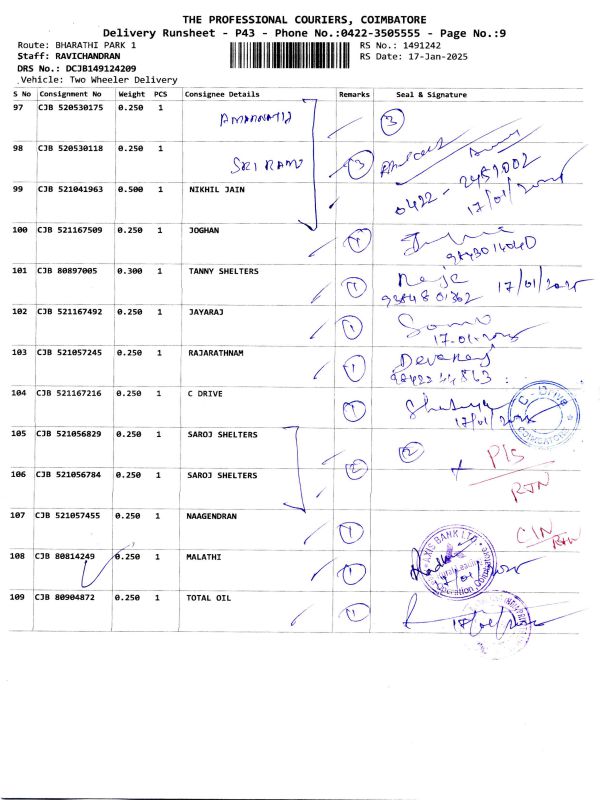 THE PROFESSIONAL COURIERS, COIMBATORE
Delivery Runsheet - P43 - Phone No.:0422-3505555 - Page No.:9
Route: BHARATHI PARK 1 RS No.: 1491242
Staff: RAVICHANDRAN RS Date: 17-Jan-2025
DRS No.: DCJB149124209
Vehicle: Two Wheeler Delivery
S No Consignment No Weight PCS Consignee Details Remarks Seal & Signature
97 CJB 520530175 0.250 1 AMARNATH 3
98 CJB 520530118 0.250 1 SRI RAM 3
0422 - 2457002
99 CJB 521041963 0.500 1 NIKHIL JAIN 17/01/2025
100 CJB 521167509 0.250 1 JOGHAN 1
101 CJB 80897005 0.300 1 TANNY SHELTERS 1 17/01/2025
102 CJB 521167492 0.250 1 JAYARAJ 1
17-01-2025
103 CJB 521057245 0.250 1 RAJARATHNAM 1 Devaraj
104 CJB 521167216 0.250 1 C DRIVE 1 C-Drive COIMBATORE
17/01/2025
105 CJB 521056829 0.250 1 SAROJ SHELTERS 2 2 P/S
106 CJB 521056784 0.250 1 SAROJ SHELTERS RTN
107 CJB 521057455 0.250 1 NAAGENDRAN 1 C/N RTN
AXIS BANK LTD.
108 CJB 80814249 0.250 1 MALATHI 1 17/01/2025
109 CJB 80904872 0.250 1 TOTAL OIL 1 17/01/2025